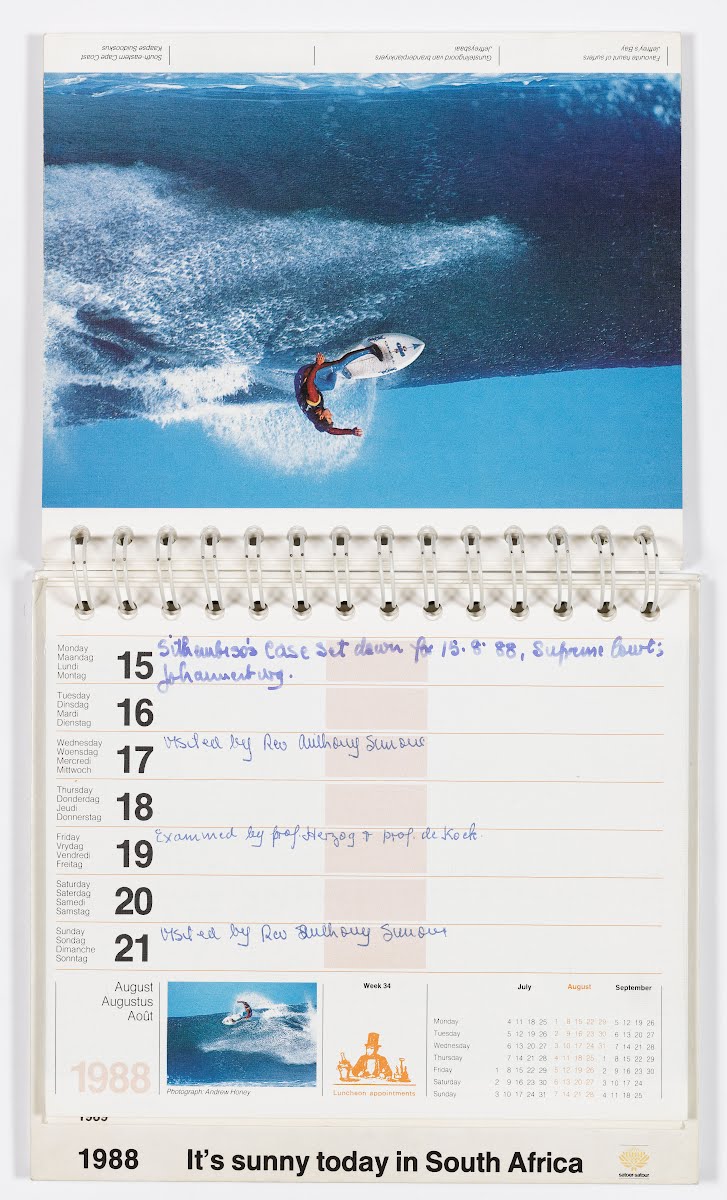 Favourite haunt of surfers
Jeffrey's Bay
Gunstelingoord van branderplankryers
Jeffreysbaai
South-eastern Cape Coast
Kaapse Suidooskus
Monday
Maandag
Lundi
Montag
15
Sithembiso's case set down for 15.8.88, Supreme Court;
Johannesburg.
Tuesday
Dinsdag
Mardi
Dienstag
16
Wednesday
Woensdag
Mercredi
Mittwoch
17
Visited by Rev Anthony Simons
Thursday
Donderdag
Jeudi
Donnerstag
18
Friday
Vrydag
Vendredi
Freitag
19
Examined by prof. Herzog + prof. de Kock.
Saturday
Saterdag
Samedi
Samstag
20
Sunday
Sondag
Dimanche
Sonntag
21
Visited by Rev Anthony Simons
August
Augustus
Août
1988
Photograph: Andrew Honey
Week 34
Luncheon appointments
July August September
Monday 4 11 18 25 1 8 15 22 29 5 12 19 26
Tuesday 5 12 19 26 2 9 16 23 30 6 13 20 27
Wednesday 6 13 20 27 3 10 17 24 31 7 14 21 28
Thursday 7 14 21 28 4 11 18 25 1 8 15 22 29
Friday 1 8 15 22 29 5 12 19 26 2 9 16 23 30
Saturday 2 9 16 23 30 6 13 20 27 3 10 17 24
Sunday 3 10 17 24 31 7 14 21 28 4 11 18 25
1989
1988 It's sunny today in South Africa
satoer·satour